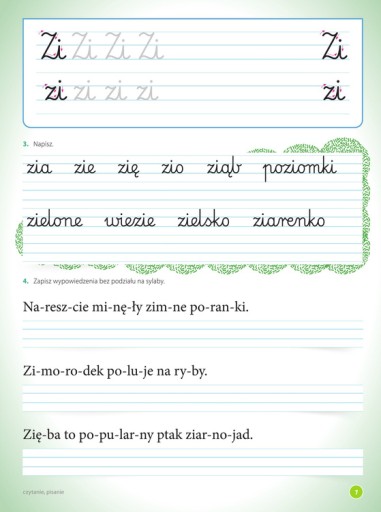 Zi Zi Zi Zi Zi
zi zi zi zi zi
3. Napisz.
zia zie zię zio ziąb poziomki
zielone wiezie zielsko ziarenko
4. Zapisz wypowiedzenia bez podziału na sylaby.
Na-resz-cie mi-nę-ły zim-ne po-ran-ki.
Zi-mo-ro-dek po-lu-je na ry-by.
Zię-ba to po-pu-lar-ny ptak ziar-no-jad.
czytanie, pisanie 7